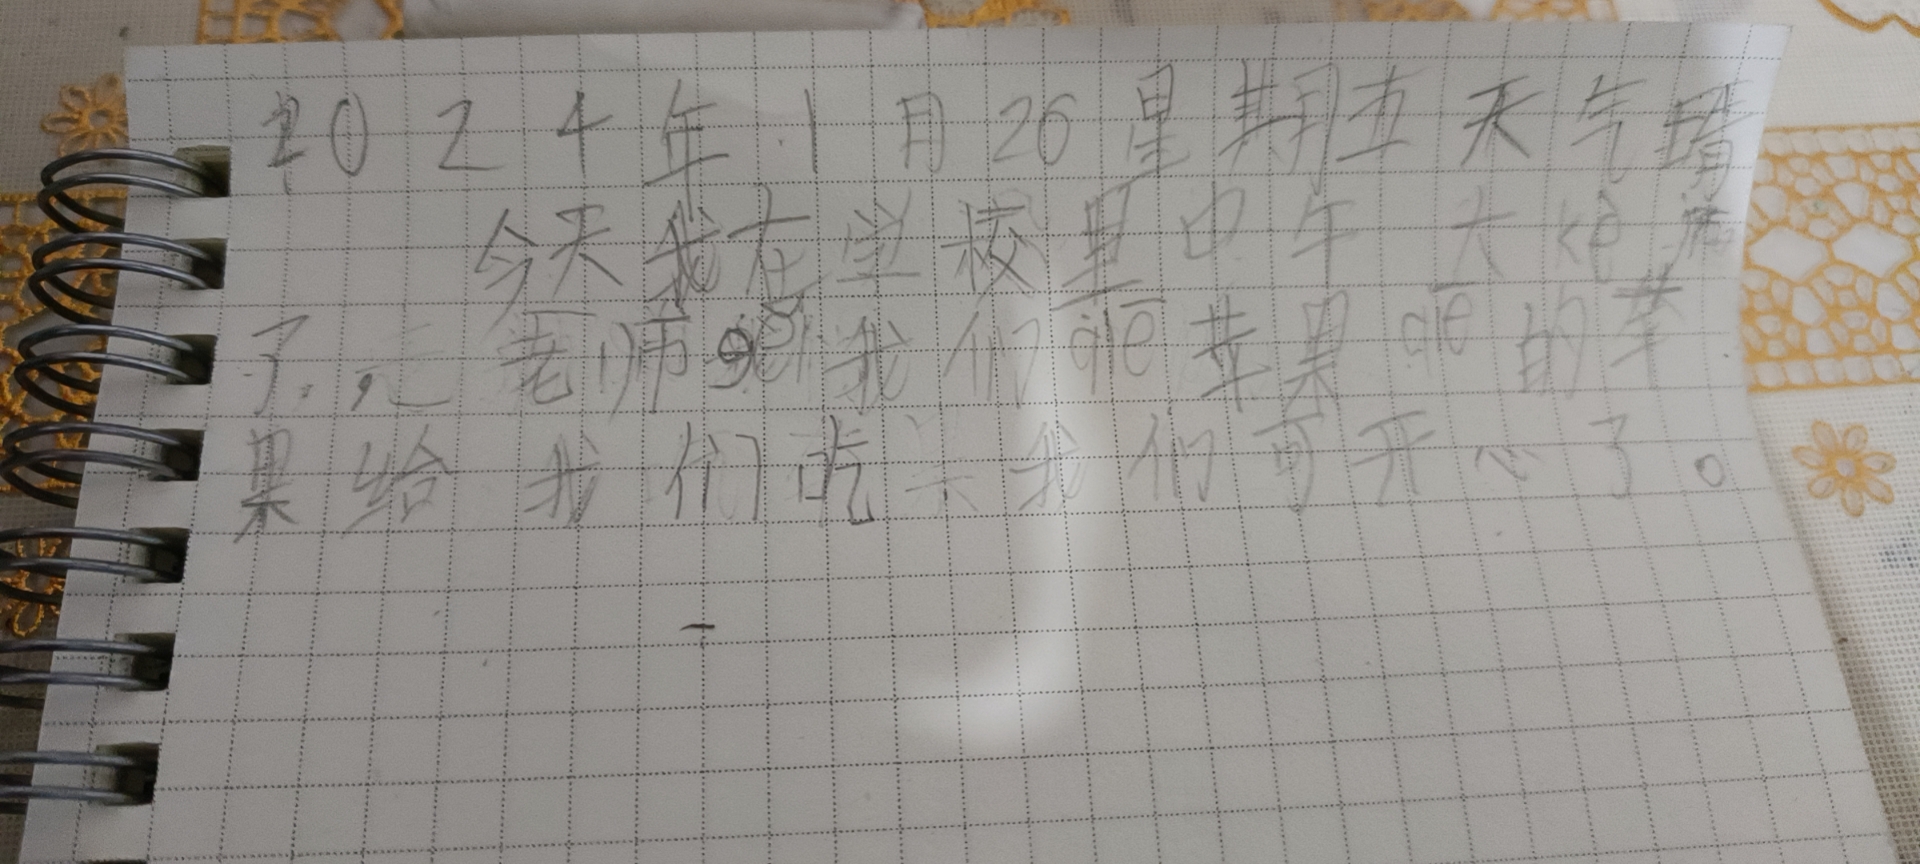 2024年1月26星期五天气晴
今天我在学校里中午大kè
了,老师gěi我们qiē苹果qiē的苹
果给我们吃 我们可开心了。